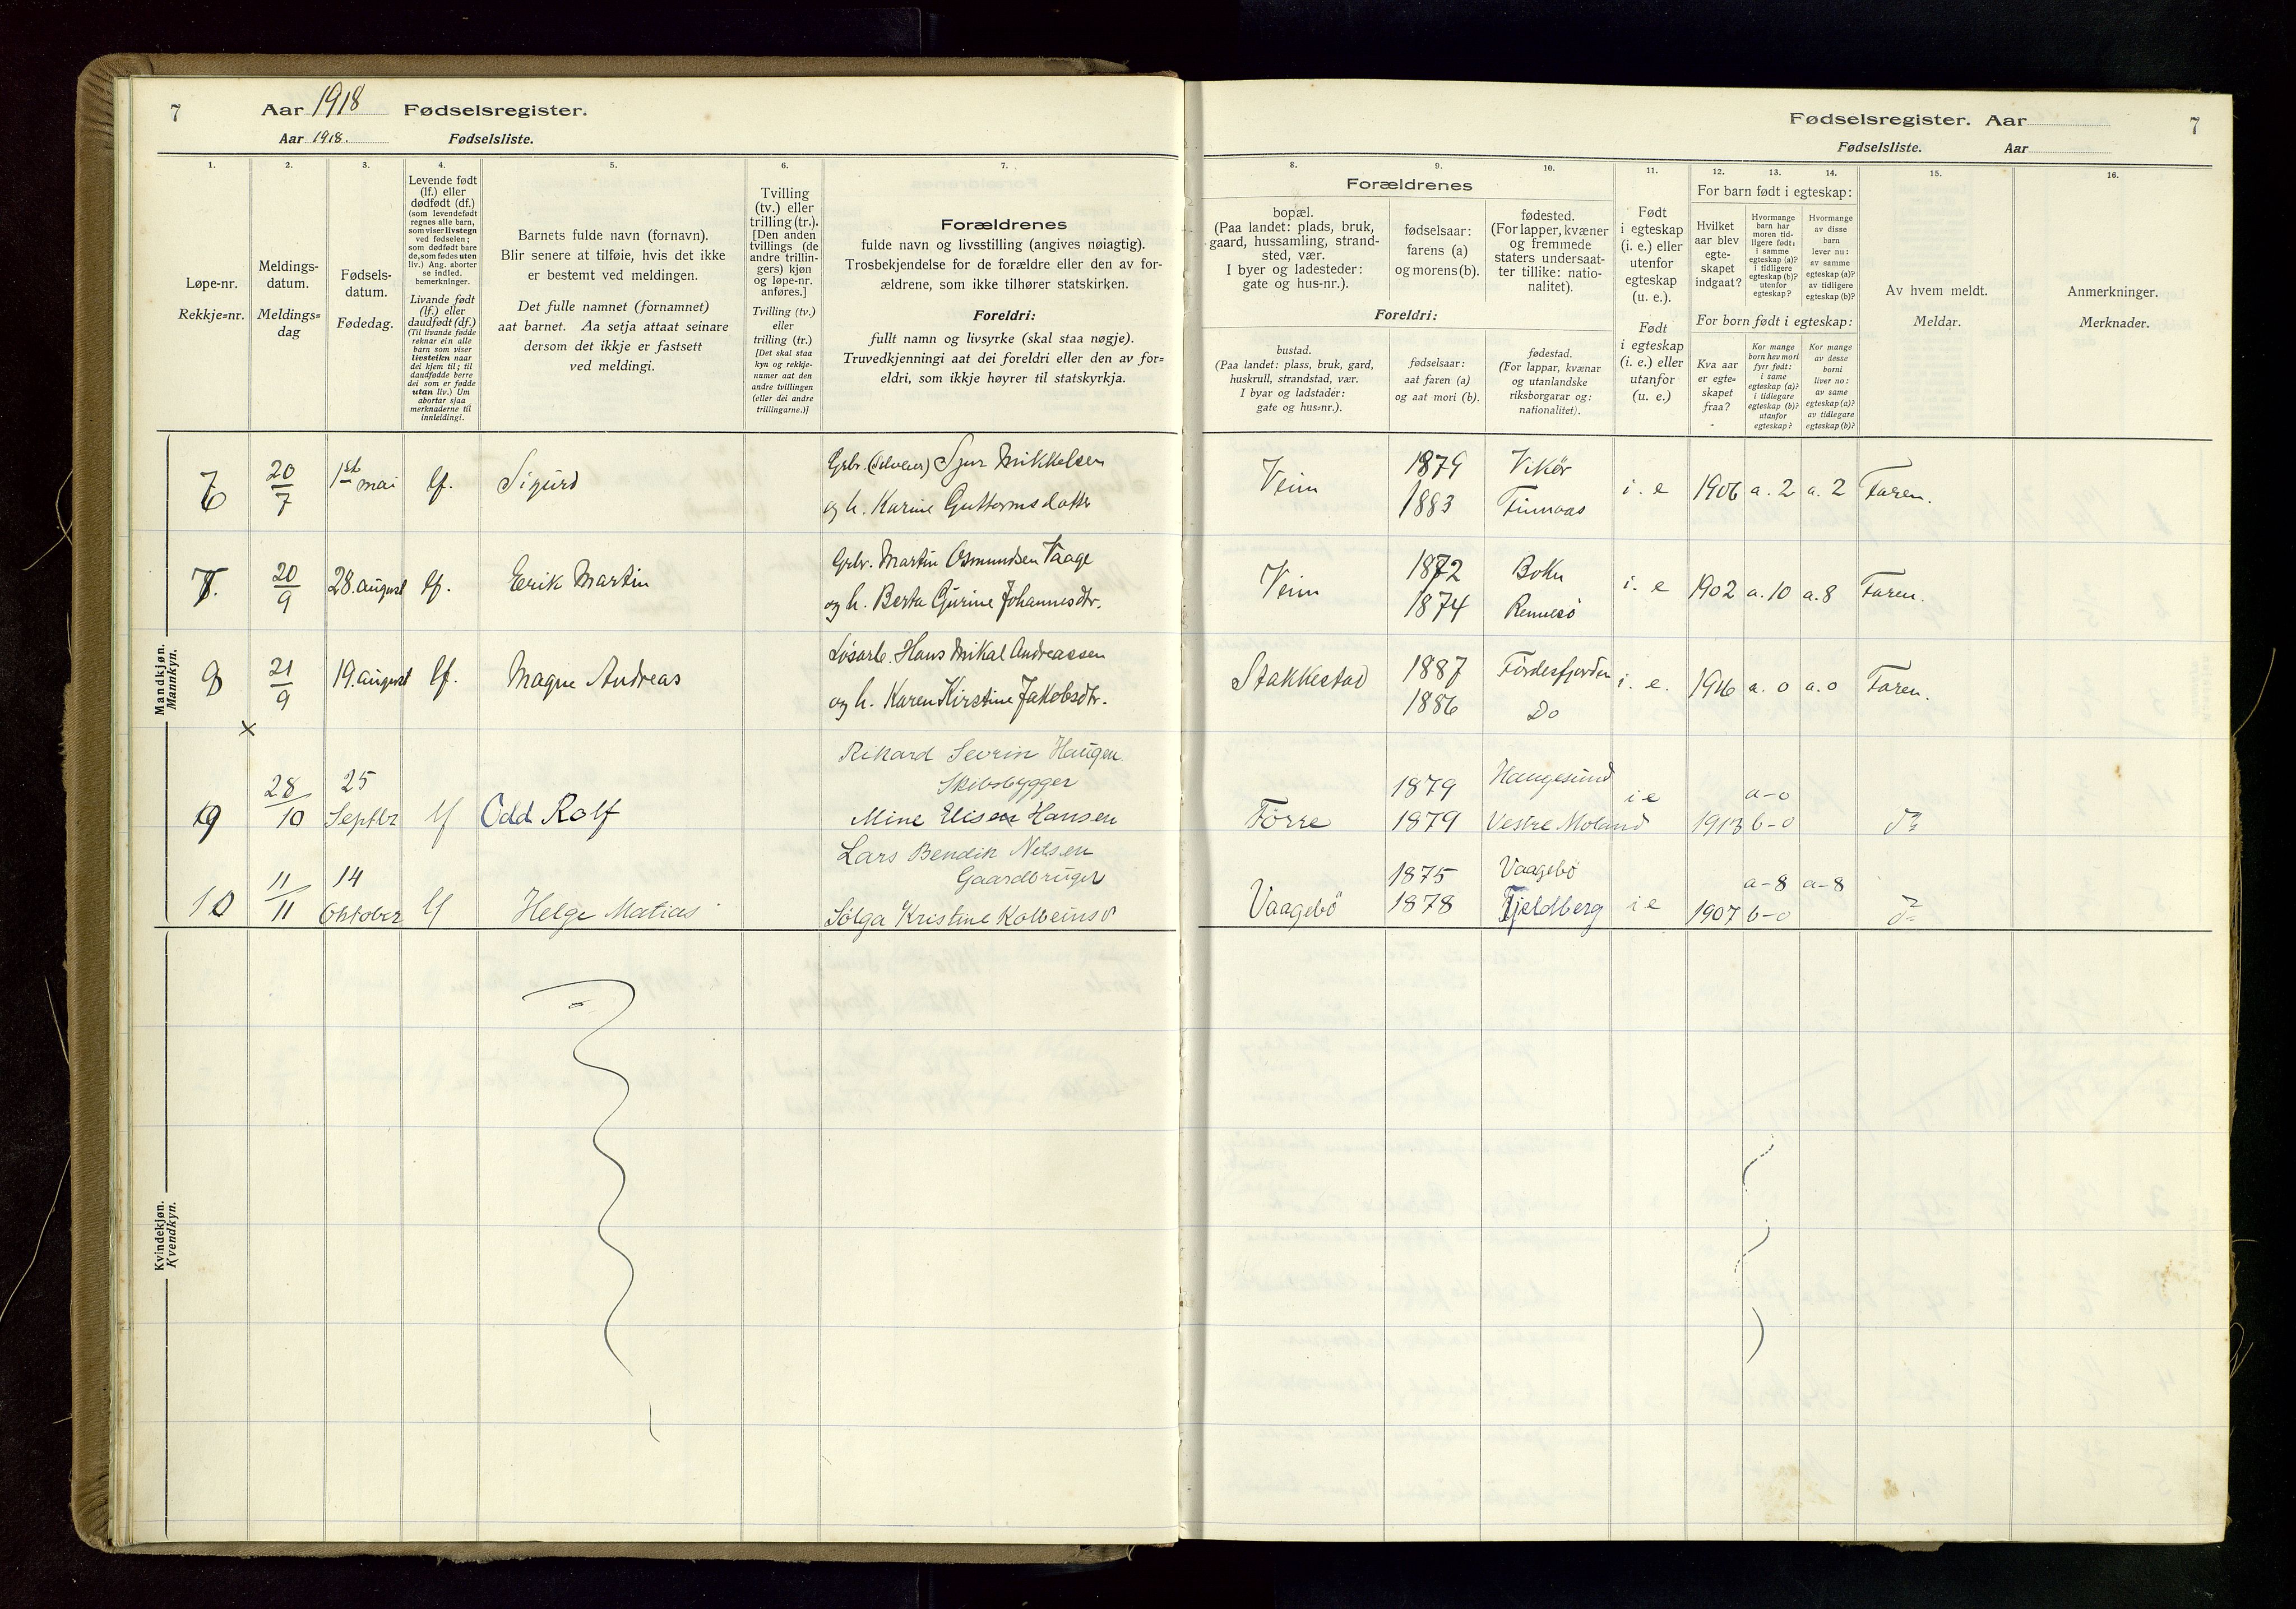 7
Aar 1918 Fødselsregister.
Aar 1918. Fødselsliste.
Fødselsregister. Aar
7
Fødselsliste. Aar
1.
Løpe-nr.
Rekkje=nr.
2.
Meldings-
datum.
Meldings=
dag
3.
Fødsels-
datum.
Fødedag.
4.
Levende født
(lf.) eller
dødfødt (df.)
(som levendefødt
regnes alle barn,
som viser livstegn
ved fødselen;
som dødfødt bare
de, som fødes uten
liv.) Ang. aborter
se indled.
bemerkninger.
Livande født
(lf.) eller
daudfødt (df.)
(Til livande fødde
reknar ein alle
barn som viser
livsteikn naar
dei kjem til; til
daudfødde berre
dei som er fødde
utan liv.) Um
abortar sjaa
merknaderne til
innleidingi.
5.
Barnets fulde navn (fornavn).
Blir senere at tilføie, hvis det ikke
er bestemt ved meldingen.
Det fulle namnet (fornamnet)
aat barnet. Aa setja attaat seinare
dersom det ikkje er fastsett
ved meldingi.
6.
Tvilling
(tv.) eller
trilling (tr.).
[Den anden
tvillings (de
andre trillin-
gers) kjøn
og løpe-nr.
anføres.]
Tvilling (tv.)
eller
trilling (tr.)
[Det skal staa
kyn og rekkje-
numer aat den
andre tvillingen
(eller dei andre
trillingarne.)]
7.
Forældrenes
fulde navn og livsstilling (angives nøiagtig).
Trosbekjendelse for de forældre eller den av for-
ældrene, som ikke tilhører statskirken.
Foreldri:
fullt namn og livsyrke (skal staa nøgje).
Truvedkjenningi aat dei foreldri eller den av for=
eldri, som ikkje høyrer til statskyrkja.
8.
Forældrenes
bopæl.
(Paa landet: plads, bruk,
gaard, hussamling, strand-
sted, vær.
I byer og ladesteder:
gate og hus-nr.).
9.
fødselsaar:
farens (a)
og morens (b).
10.
fødested.
(For lapper, kvæner
og fremmede
staters undersaat-
ter tillike: natio-
nalitet).
Foreldri:
bustad.
(Paa landet: plass, bruk, gard,
huskrull, strandstad, vær.
I byar og ladstader:
gate og hus=nr.).
fødselsaar:
aat faren (a)
og aat mori (b).
fødestad.
(For lappar, kvænar
og utanlandske
riksborgarar og:
nationalitet).
11.
Født
i egteskap
(i. e.) eller
utenfor
egteskap
(u. e.).
Født
i egteskap
(i. e.) eller
utanfor
(u. e.)
12. 13. 14.
For barn født i egteskap:
Hvilket
aar blev
egte-
skapet
indgaat?
Hvormange
barn har
moren tid-
ligere født:
i samme
egteskap (a)?
i tidligere
egteskap (b)?
utenfor
egteskap?
Hvormange
av disse
barn
lever nu:
av samme
egteskap (a)?
av tidligere
egteskap (b)?
For born født i egteskap:
Kva aar
er egte=
skapet
fraa?
Kor mange
born hev mori
fyrr født:
i same
egteskap (a)?
i tidlegare
egteskap (b)?
utanfor
egteskap?
Kor mange
av desse
borni
liver no:
av same
egteskap (a)?
av tidlegare
egteskap (b)?
15.
Av hvem meldt.
Meldar.
16.
Anmerkninger.
Merknader.
Mandkjøn.
Mannkyn.
6 20/7 1ste mai lf. Sigurd Grbr. Sjur Mikkelsen
og h. Karine Guttormsdatter
Veim 1879 Vikør
1883 Finnaas
i. e 1906 a. 2 a. 2 Faren.
7. 20/9 28. august lf. Erik Martin Grbr. Martin Osmundsen Vaage
og h. Berta Gurine Johannesdtr.
Veim 1872 Bokn
1874 Rennesø
i. e 1902 a. 10 a. 8 Faren.
8 21/9 19. august lf. Magne Andreas Løsarb. Hans Mikal Andreassen
og h. Karen Kirstine Jakobsdtr.
Stakkestad 1887 Førdesfjorden
1886 Do
i. e. 1916 a. 0 a. 0 Faren.
×
9 28/10 25 Septbr lf Odd Rolf Rikard Sevrin Haugen
Skibsbygger
Mine Elise Hansen
Førre 1879 Haugesund
1879 Vestre Moland
i e 1913 a-0
b-0 do
10 11/11 14 Oktober lf Helge Matias Lars Bendik Nilsen
Gaardbruger
Sølga Kristine Kolbeins d
Vaagebø 1875 Vaagebø
1878 Fjeldberg
i e 1907 a-8 a-8
b-0 do
Kvindekjøn.
Kvendkyn.